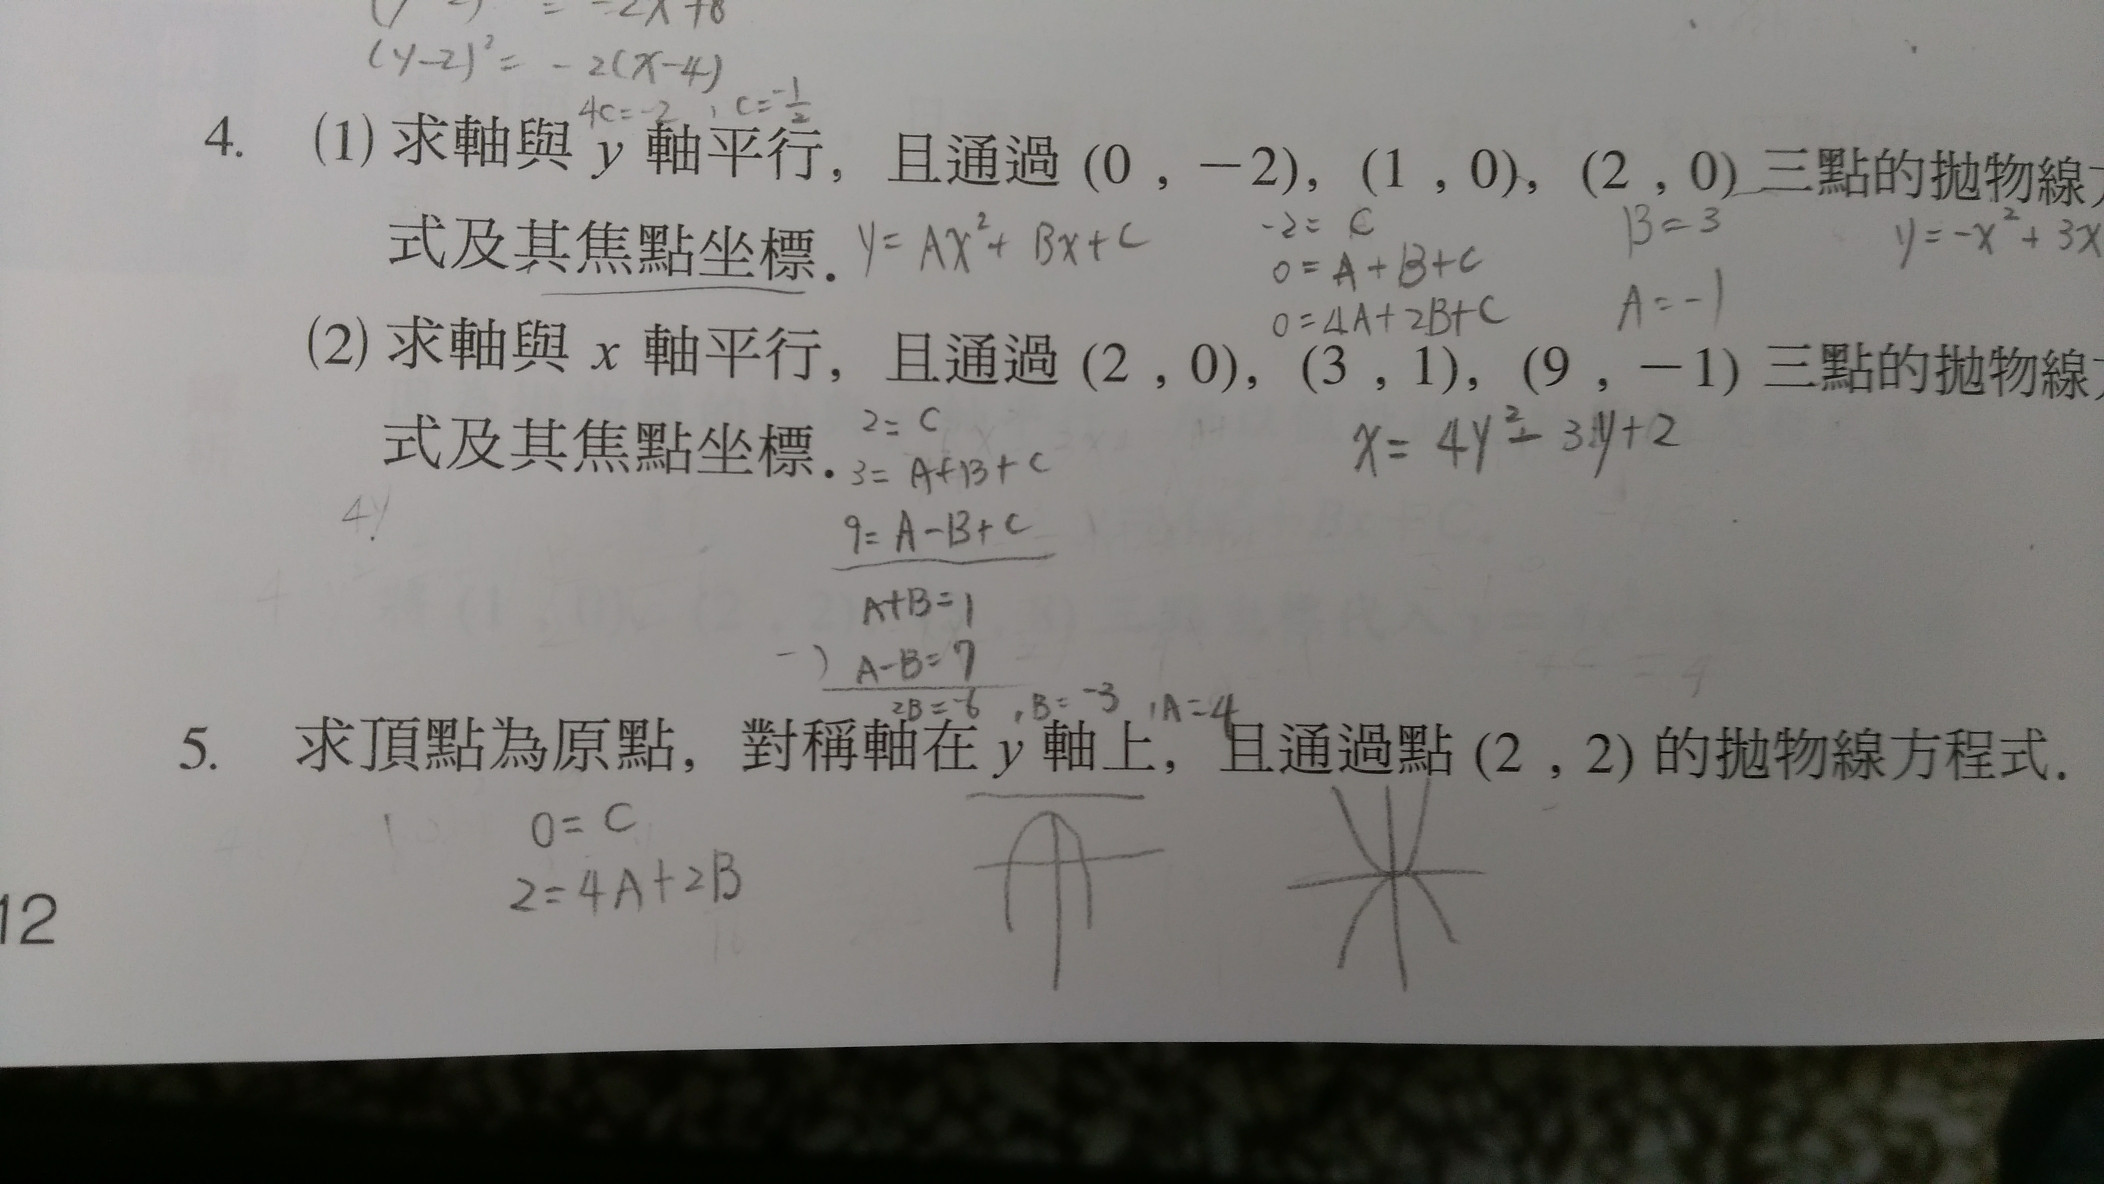 = -2x+8
(y-2)² = -2(x-4)
4c=-2, c=-1/2
4. (1) 求軸與 y 軸平行，且通過 (0 , －2)，(1 , 0)，(2 , 0) 三點的拋物線
式及其焦點坐標．
y = Ax² + Bx + C
-2 = C
0 = A+B+C
0=4A+2B+C
B=3
A=-1
y=-x²+3x
(2) 求軸與 x 軸平行，且通過 (2 , 0)，(3 , 1)，(9 , －1) 三點的拋物線
式及其焦點坐標．
2= C
3= A+B+C
9= A-B+C
A+B=1
-) A-B=7
2B=-6 , B=-3 , A=4
x= 4y²-3y+2
4y
5. 求頂點為原點，對稱軸在 y 軸上，且通過點 (2 , 2) 的拋物線方程式．
0= C
2=4A+2B
12